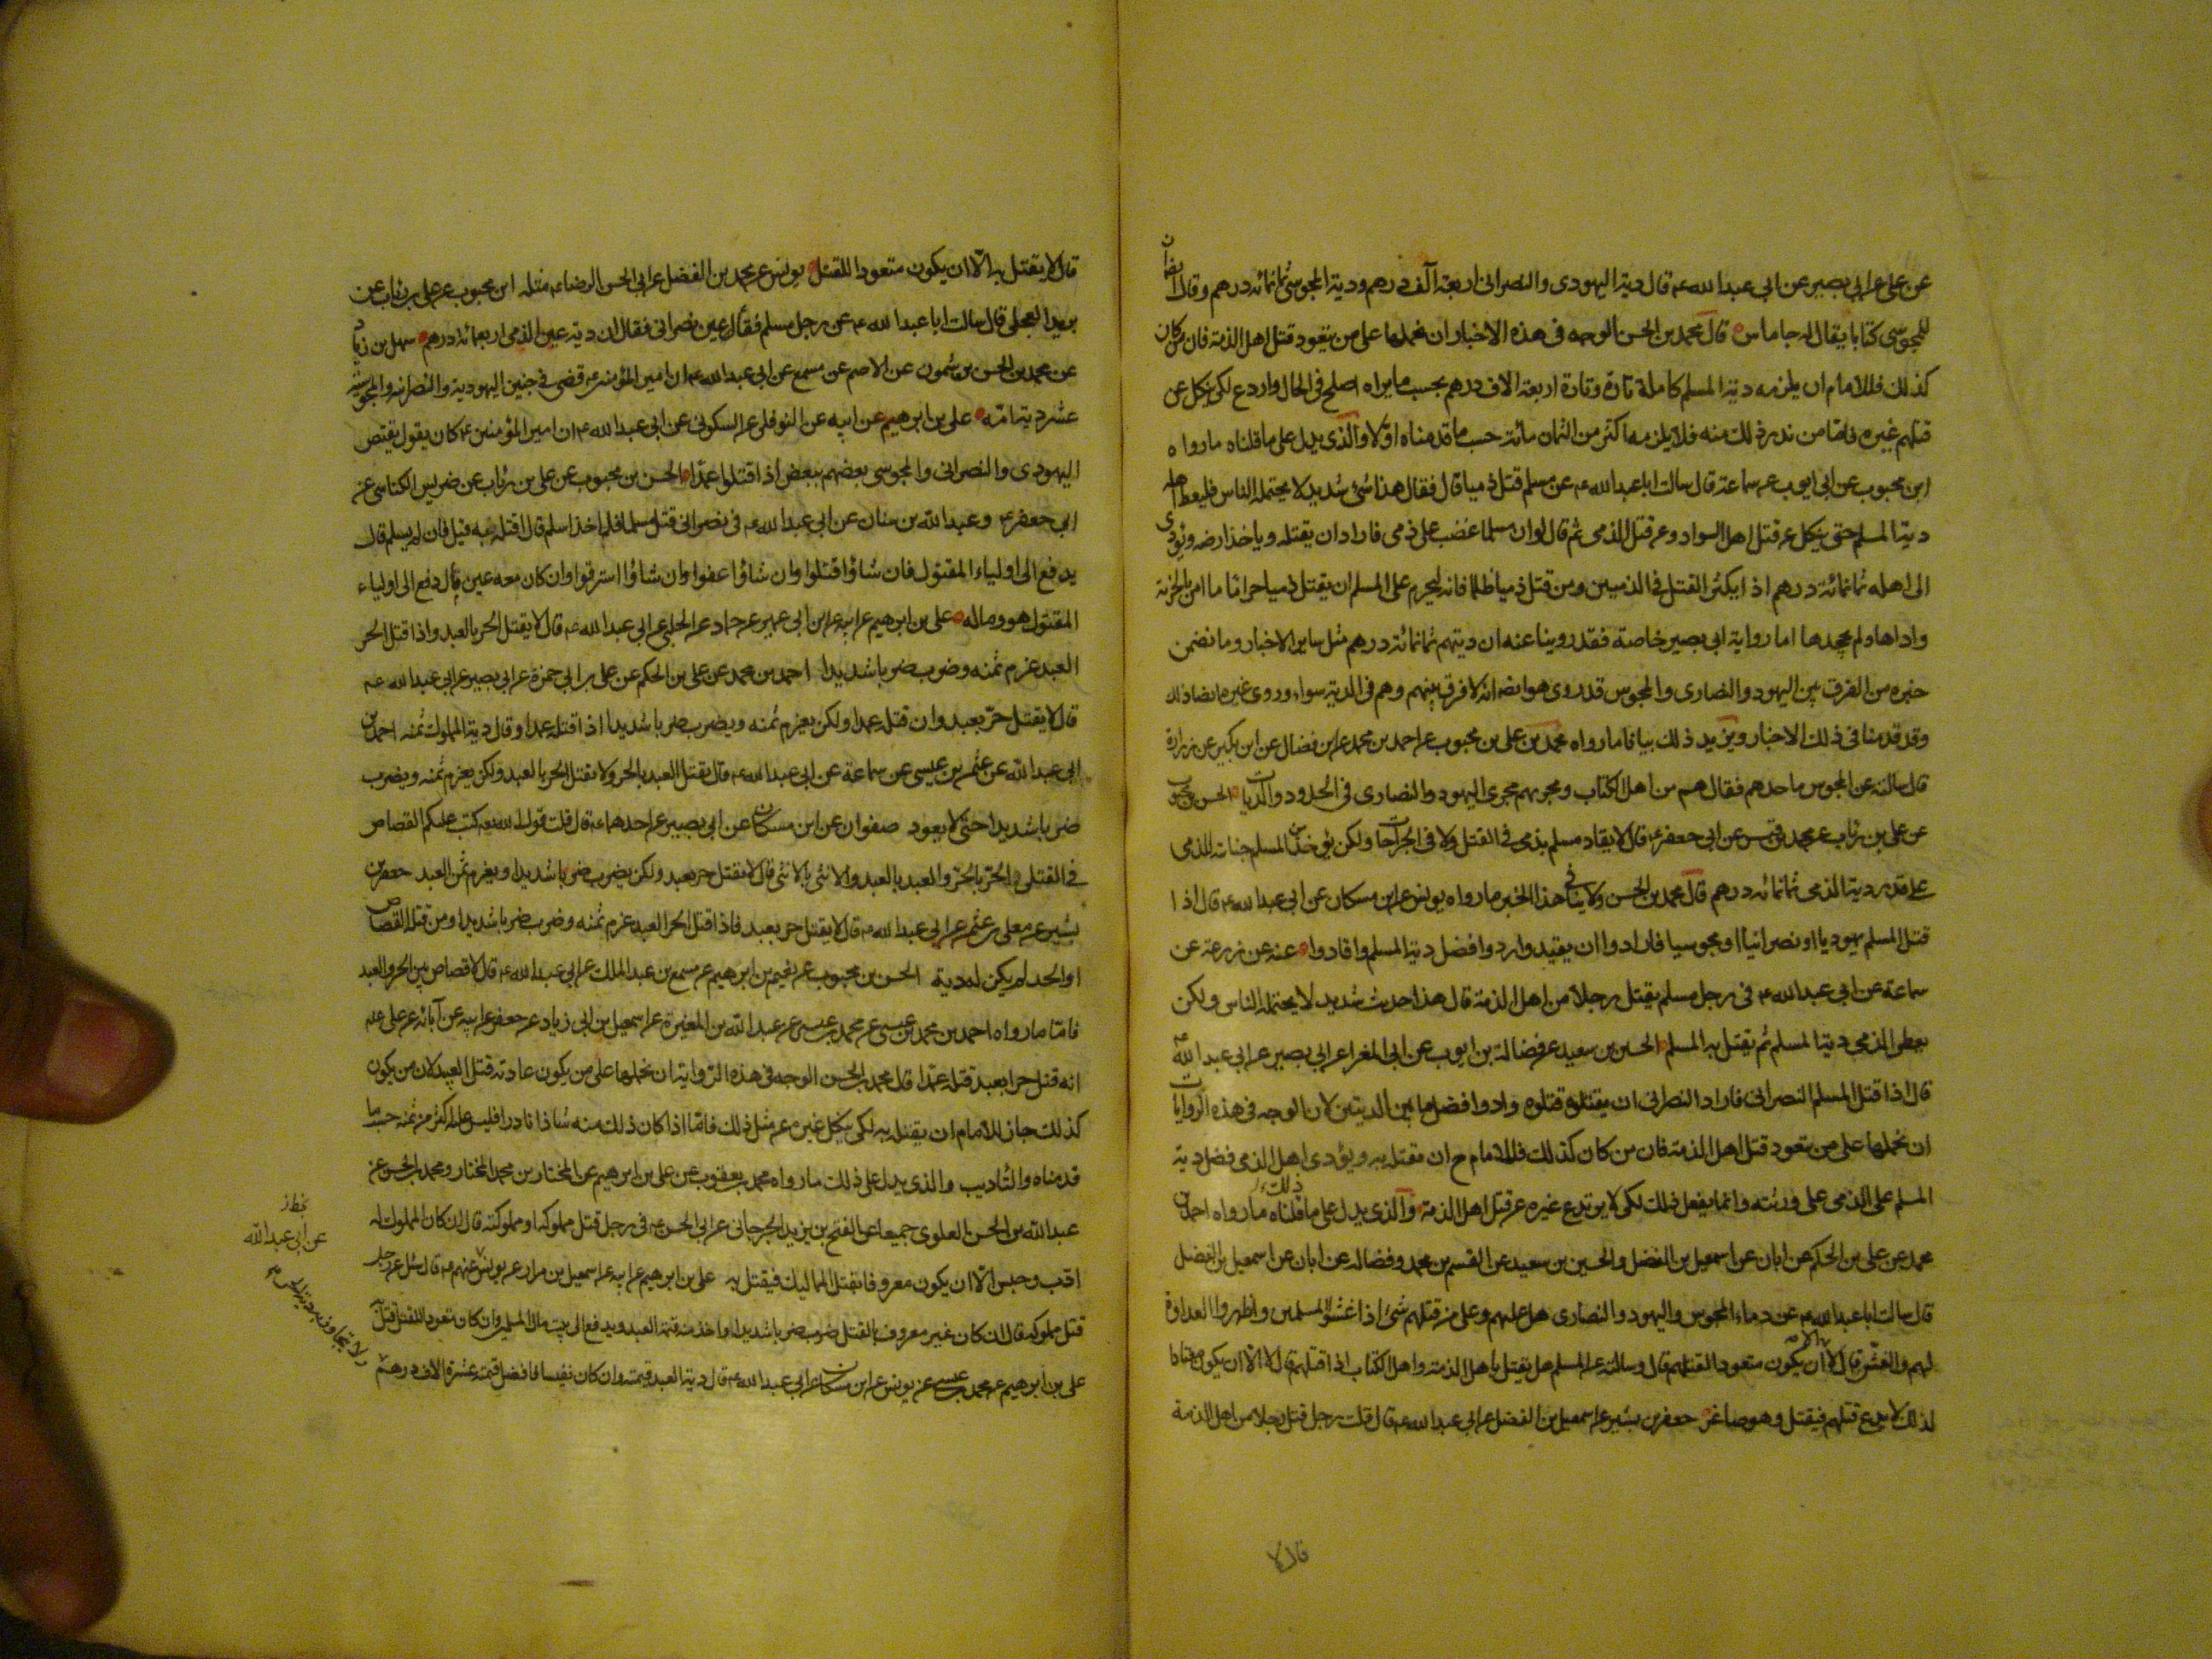 عن على عن ابى بصير عن ابى عبدالله ع قال دية اليهودى والنصرانى اربعة آلف درهم ودية المجوسى ثمانمائه درهم وقال ايضا ان
للمجوسى كتابا يقال له جاماس قال محمد بن الحسن الوجه فى هذه الاخبار ان نحملها على من يتعود قتل اهل الذمة فان من كان
كذلك فللامام ان يلزمه دية المسلم كاملة تارة وتارة اربعة الاف درهم بحسب ما يراه اصلح فى الحال واردع لكى ينكل عن
قتلهم غيره فاما من ندر ذلك منه فلا يلزمه اكثر من الثمان مائة حسب ما قدمناه اولا والذى يدل على ما قلناه مارواه
ابن محبوب عن ابى ايوب عن سماعة قال سالت اباعبدالله ع عن مسلم قتل ذميا قال فقال هذا شئ شديد لا يحتمله الناس فليعط اهله
دية المسلم حتى ينكل عن قتل اهل السواد وعن قتل الذمى ثم قال لو ان مسلما غضب على ذمى فاراد ان يقتله وياخذ ارضه ويؤدى
الى اهله ثمانمائة درهم اذا يكثر القتل فى الذميين ومن قتل ذميا ظلما فانه ليحرم على المسلم ان يقتل ذميا حراما ما امن بالجزية
واداها ولم يجحدها اما رواية ابى بصير خاصة فقد روينا عنه ان ديتهم ثمانمائة درهم مثل ساير الاخبار وما تضمن
خبره من الفرق بين اليهود والنصارى والمجوس قد روى هو ايضا انه لا فرق بينهم وهم فى الدية سواء وروى غيره ايضا ذلك
وقد قدمنا فى ذلك الاخبار ويزيد ذلك بيانا مارواه محمد بن على بن محبوب عن احمد بن محمد عن ابن فضال عن ابن بكير عن زرارة
قال سالته عن المجوس ما حدهم فقال هم من اهل الكتاب ومجريهم مجرى اليهود والنصارى فى الحدود والديات الحسن بن محبوب
عن على بن رئاب عن محمد بن قيس عن ابى جعفر ع قال لا يقاد مسلم بذمى فى القتل ولا فى الجراحات ولكن يؤخذ من المسلم جنايته للذمى
على قدر دية الذمى ثمانمائه درهم قال محمد بن الحسن ولا ينافى هذا الخبر مارواه يونس عن ابن مسكان عن ابى عبدالله ع قال اذا
قتل المسلم يهوديا او نصرانيا او مجوسيا فارادوا ان يقيدوا ردوا فضل دية المسلم واقادوا عنه عن زرعة عن
سماعة عن ابى عبدالله ع فى رجل مسلم يقتل رجلا من اهل الذمة قال هذا حديث شديد لا يحتمله الناس ولكن
يعطى الذمى دية المسلم ثم يقتل به المسلم الحسين بن سعيد عن فضالة بن ايوب عن ابى المغرا عن ابى بصير عن ابى عبدالله ع
قال اذا قتل المسلم النصرانى فاراد النصرانى ان يقتلوه قتلوه وادوا فضل ما بين الديتين لان الوجه فى هذه الروايات
ان نحملها على من يتعود قتل اهل الذمة فان من كان كذلك فللامام ح ان يقتله به ويؤدى اهل الذمى فضل دية
المسلم على الذمى على ورثته وانما يفعل ذلك لكى لا يرتدع غيره عن قتل اهل الذمة والذى يدل على ما قلناه ذلك مارواه احمد بن
محمد عن على بن الحكم عن ابان عن اسمعيل بن الفضل والحسين بن سعيد عن القسم بن محمد وفضاله عن ابان عن اسمعيل بن الفضل
قال سالت اباعبدالله ع عن دماء المجوس واليهود والنصارى هل عليهم وعلى من قتلهم شئ اذا غشوا المسلمين واظهروا العداوة
لهم والغش قال لا الا ان يكون متعودا لقتلهم قال وسالته عن المسلم هل يقتل باهل الذمة واهل الكتاب اذا قتلهم قال لا الا ان يكون معتادا
لذلك لا يدع قتلهم فيقتل وهو صاغر جعفر بن بشير عن اسمعيل بن الفضل عن ابى عبدالله ع قال قلت رجل قتل رجلا من اهل الذمة
قال لا
قال لا يقتل به الا ان يكون متعودا للقتل يونس عن محمد بن الفضل عن ابى الحسن الرضا ع مثله ابن محبوب عن على بن رئاب عن
بريد العجلى قال سالت اباعبدالله ع عن رجل مسلم فقأ عين نصرانى فقال ان دية عين الذمى اربعمائة درهم سهل بن زياد
عن محمد بن الحسن بن شمون عن الاصم عن مسمع عن ابى عبدالله ع ان امير المؤمنين ع قضى فى جنين اليهودية والنصرانيه والمجوسية
عشر دية امه على بن ابرهيم عن ابيه عن النوفلى عن السكونى عن ابى عبدالله ع ان امير المؤمنين ع كان يقول يقتص
اليهودى والنصرانى والمجوسى بعضهم ببعض اذا قتلوا عمدا الحسن بن محبوب عن على بن رئاب عن ضريس الكناسى عن
ابى جعفر ع وعبدالله بن سنان عن ابى عبدالله ع فى نصرانى قتل مسلما فلما اخذ اسلم قال اقتله به قيل فان لم يسلم قال
يدفع الى اولياء المقتول فان شاؤا قتلوا وان شاؤا عفوا وان شاؤا استرقوا وان كان معه عين مال دفع الى اولياء
المقتول هو وماله على بن ابرهيم عن ابيه عن ابن ابى عمير عن حماد عن الحلبى عن ابى عبدالله ع قال لا يقتل الحر بالعبد واذا قتل الحر
العبد غرم ثمنه وضرب ضربا شديدا احمد بن محمد عن على بن الحكم عن على بن ابى حمزة عن ابى بصير عن ابى عبدالله ع
قال لا يقتل حر بعبد وان قتله عمدا ولكن يغرم ثمنه ويضرب ضربا شديدا اذا قتله عمدا وقال دية المملوك ثمنه احمد بن
ابى عبدالله عن عثمن بن عيسى عن سماعة عن ابى عبدالله ع قال يقتل العبد بالحر ولا يقتل الحر بالعبد ولكن يغرم ثمنه ويضرب
ضربا شديدا حتى لا يعود صفوان عن ابن مسكان عن ابى بصير عن احدهما ع قال قلت قول الله تعه كتب عليكم القصاص
فى القتلى الحر بالحر والعبد بالعبد والانثى بالانثى قال لا يقتل حر بعبد ولكن يضرب ضربا شديدا ويغرم ثمن العبد جعفر بن
بشير عن معلى بن عثمن عن ابى عبدالله ع قال لا يقتل حر بعبد فاذا قتل الحر العبد غرم ثمنه وضرب ضربا شديدا ومن قتله القصاص
او الحد لم يكن له دية الحسن بن محبوب عن نعيم بن ابرهيم عن مسمع بن عبدالملك عن ابى عبدالله ع قال لا قصاص بين الحر والعبد
فاما مارواه احمد بن محمد بن عيسى عن محمد بن عيسى عن عبدالله بن المغيرة عن اسمعيل بن ابى زياد عن جعفر عن ابيه عن آبائه عن على ع
انه قتل حرا بعبد قتله عمدا قال محمد بن الحسن الوجه فى هذه الرواية ان نحملها على من يكون عادته قتل العبيد لان من يكون
كذلك جاز للامام ان يقتله به لكى ينكل غيره عن مثل ذلك فاما اذا كان ذلك منه شاذا نادرا فليس عليه اكثر من ثمنه حسب ما
قدمناه والتاديب والذى يدل على ذلك مارواه محمد بن يعقوب عن على بن ابرهيم عن المختار بن محمد المختار ومحمد بن الحسن عن
عبدالله بن الحسن العلوى جميعا عن الفتح بن يزيد الجرجانى عن ابى الحسن ع فى رجل قتل مملوكه او مملوكته قال ان كان المملوك له
ادب وحبس الا ان يكون معروفا بقتل المماليك فيقتل به على بن ابرهيم عن ابيه عن اسمعيل بن مرار عن يونس عنهم ع قال سئل عن رجل
قتل مملوكه قال ان كان غير معروف بالقتل ضرب ضربا شديدا واخذ منه قيمة العبد ويدفع الى بيت مال المسلمين وان كان متعودا للقتل قتل به
على بن ابرهيم عن محمد بن عيسى عن يونس عن ابن مسكان عن ابى عبدالله ع قال دية العبد قيمته وان كان نفيسا فافضل قيمته عشرة الاف درهم
عن ابى عبدالله